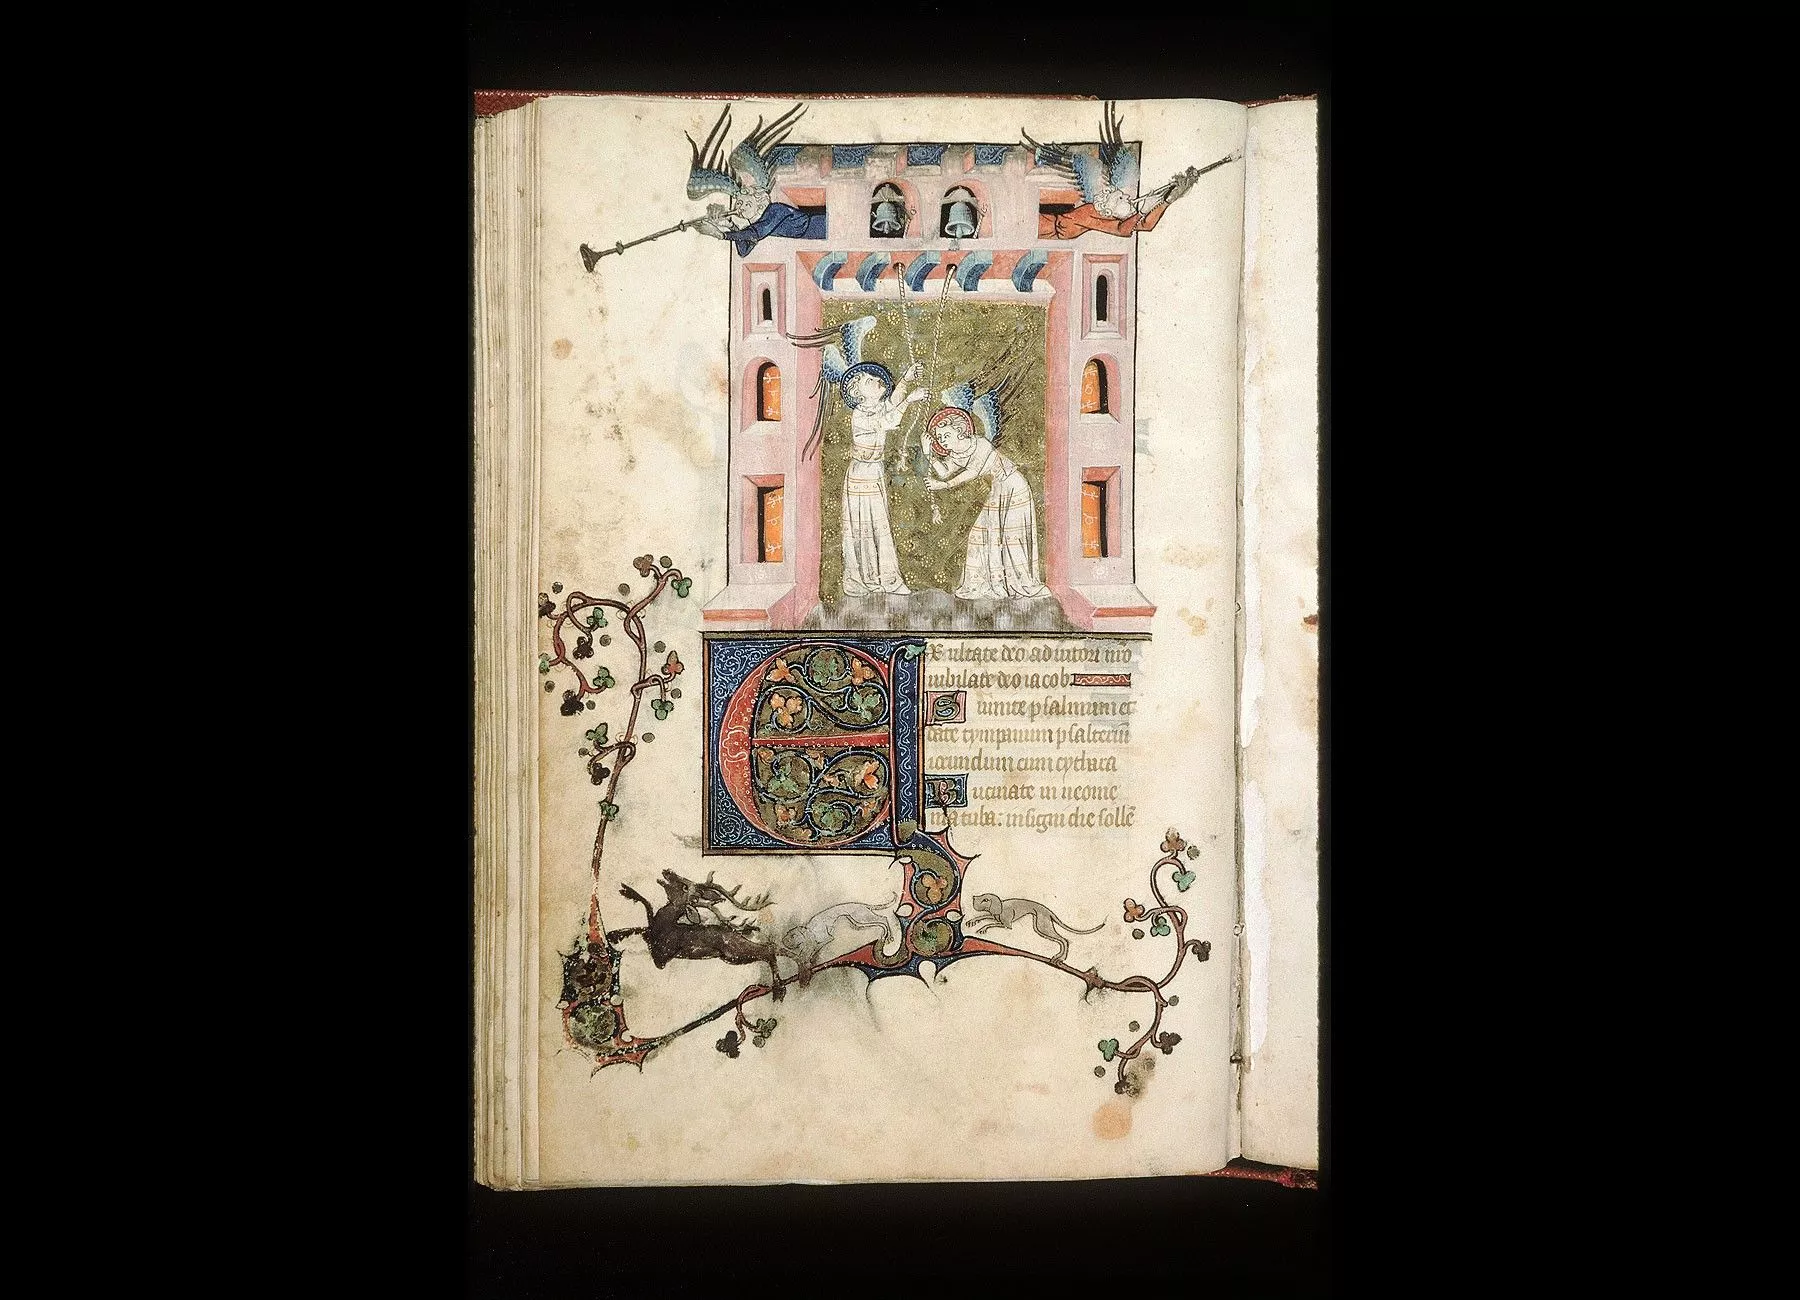 Exultate deo adiutori nr̄o
iubilate deo iacob
Sumite psalmum et
date tympanum psalteriū
iocundum cum cythara
Bucinate in neome
nia tuba: in signi die sollē